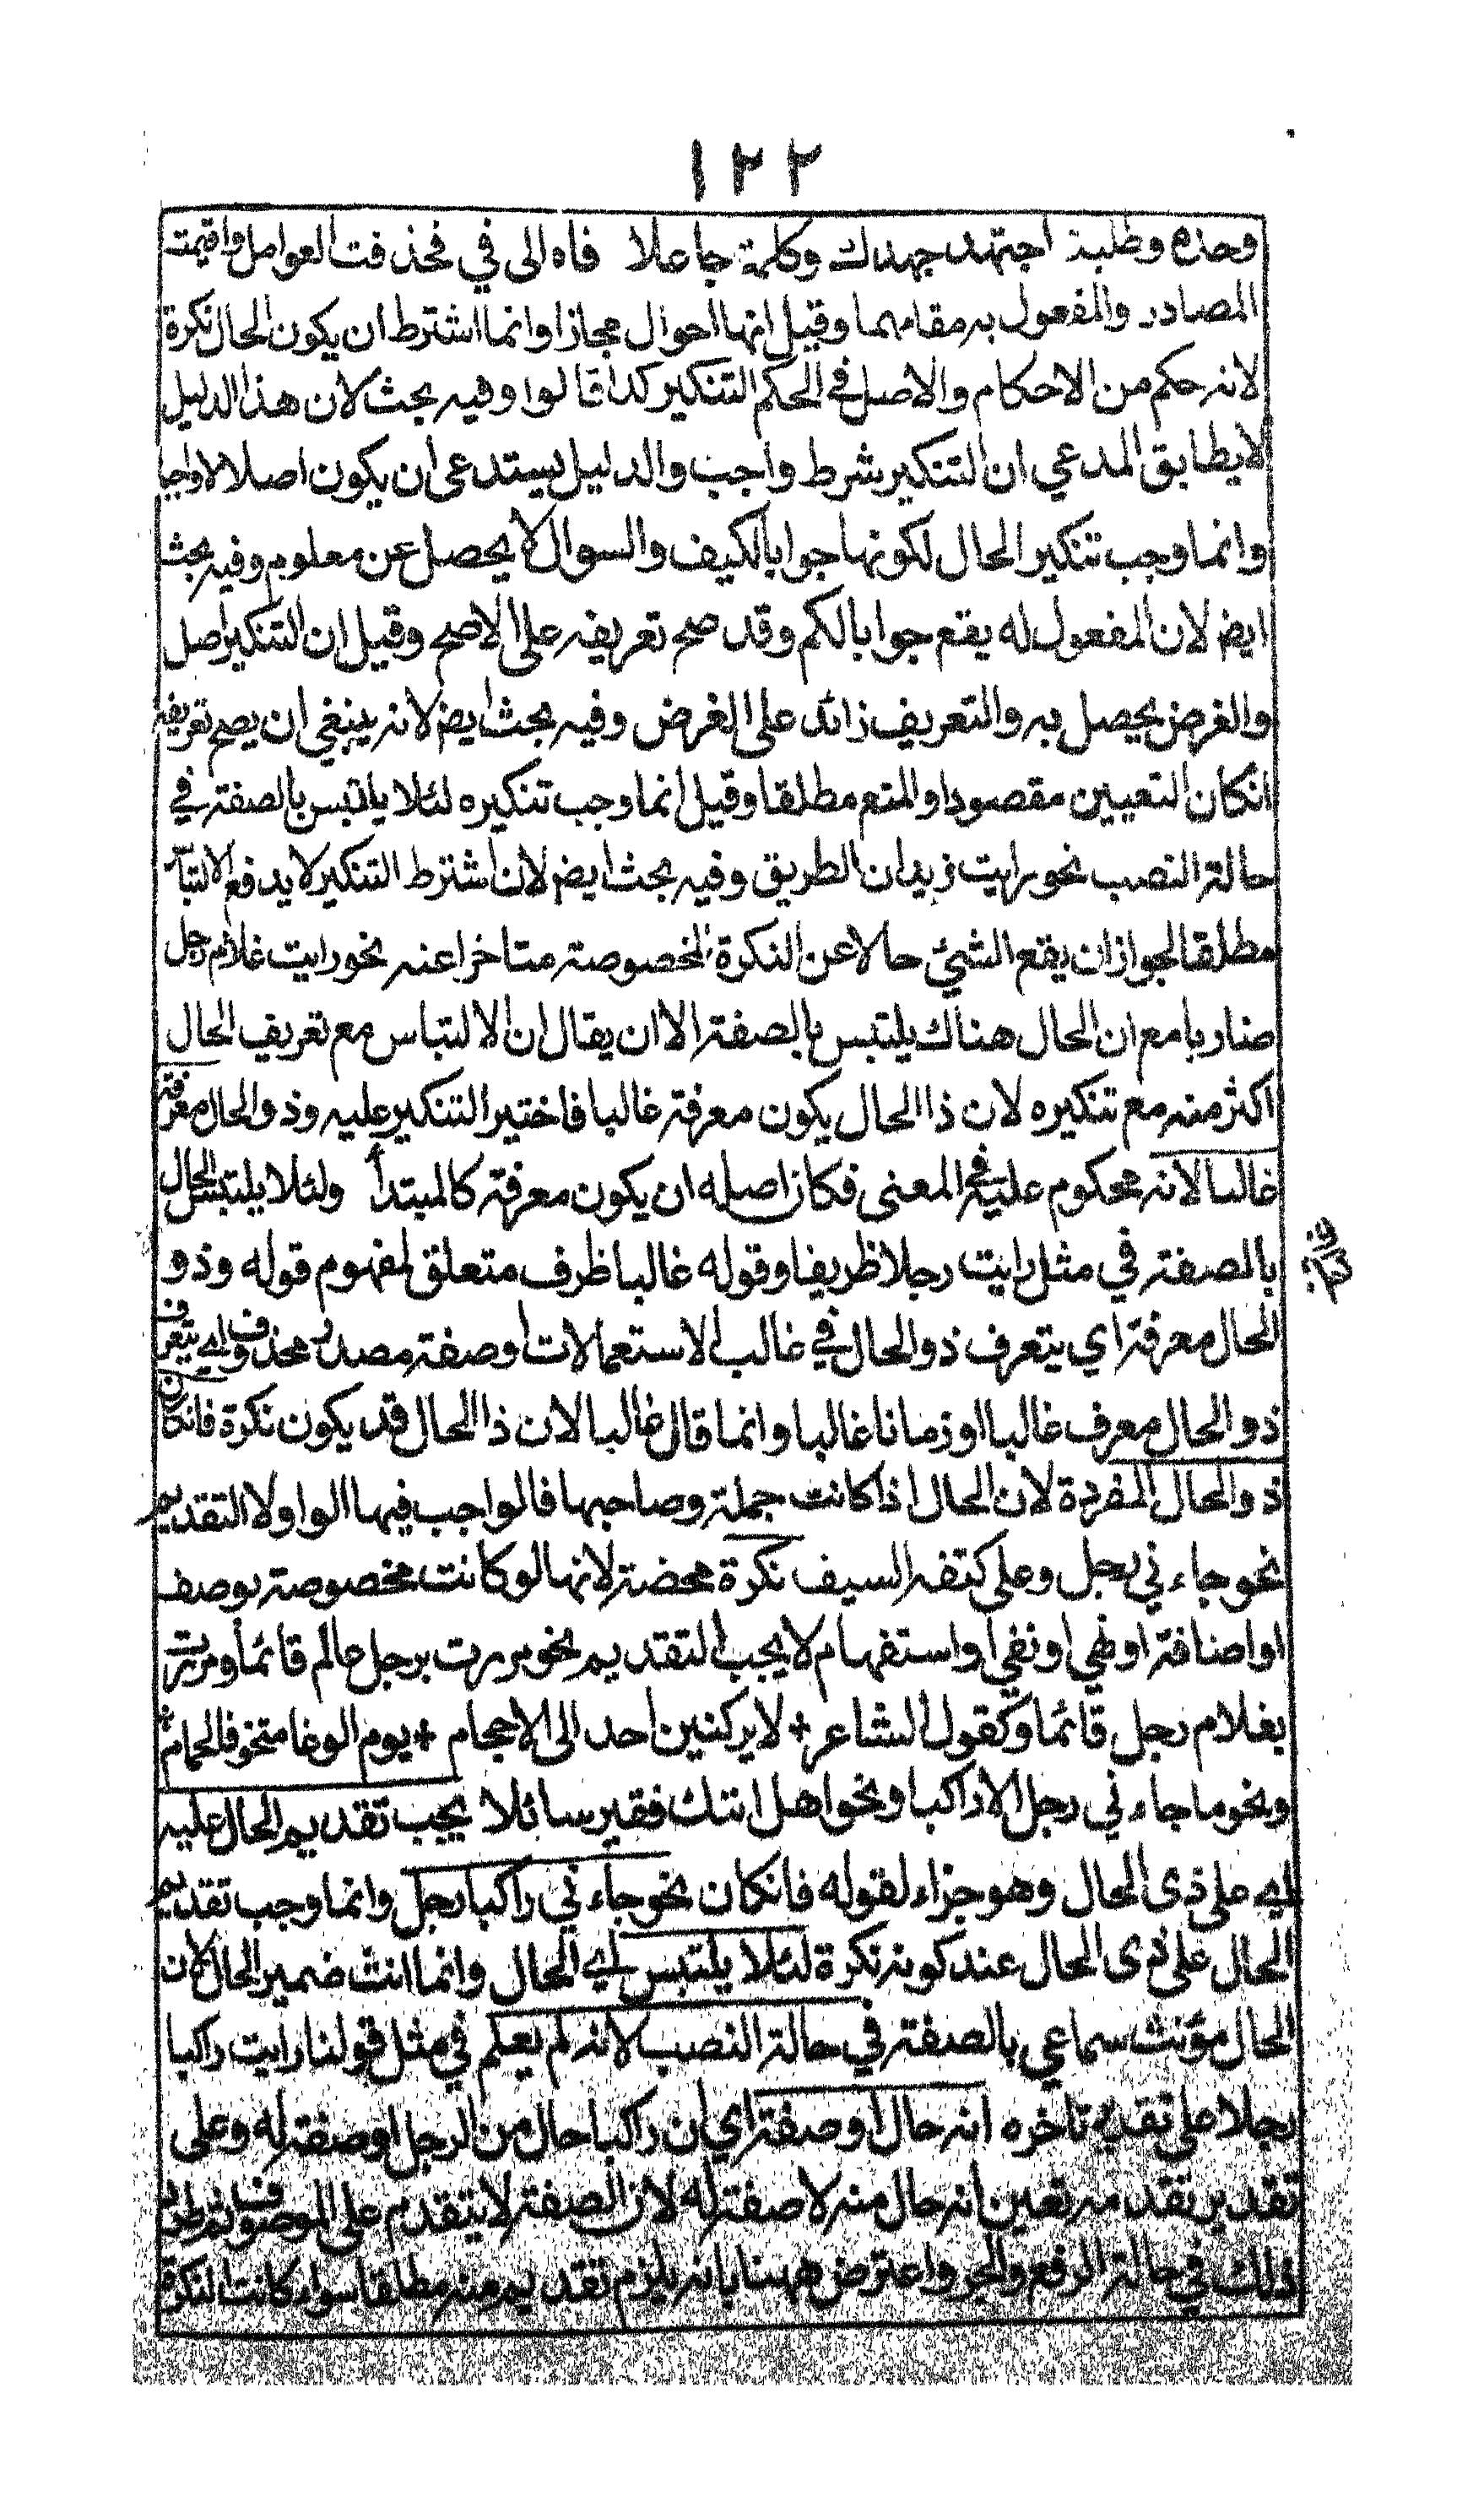 ١٢٢
وحده وطلبته اجتهد جهدك وكلمته جاعلا فاه الى في فحذفت العوامل واقيمت
المصادر والمفعول به مقامهما وقيل انها احوال مجازا وانما اشترط ان يكون الحال نكرة
لانه حكم من الاحكام والاصل في الحكم التنكير كذا قالوا وفيه بحث لان هذا الدليل
لا يطابق المدعي ان التنكير شرط واجب والدليل يستدعى ان يكون اصلا لا واجبا
وانما وجب تنكير الحال لكونها جوابا لكيف والسوال لا يحصل عن معلوم وفيه بحث
ايض لان المفعول له يقع جوابا لكم وقد صح تعريفه على الاصح وقيل ان التنكير اصل
والغرض يحصل به والتعريف زائد على الغرض وفيه بحث ايض لانه ينبغي ان يصح تعريفه
انكان التعيين مقصودا والمنع مطلقا وقيل انما وجب تنكيره لئلا يلتبس بالصفة في
حالة النصب نحو رايت زيدان الطريق وفيه بحث ايض لان اشترط التنكير لا يدفع الالتباس
مطلقا لجواز ان يقع الشيئ حالا عن النكرة المخصوصة متاخرا عنه نحو رايت غلام رجل
ضاربا مع ان الحال هناك يلتبس بالصفة الا ان يقال ان الالتباس مع تعريف الحال
اكثر منه مع تنكيره لان ذا الحال يكون معرفة غالبا فاختير التنكير عليه وذو الحال معرفة
غالبا لانه محكوم عليه في المعنى فكان اصله ان يكون معرفة كالمبتدأ ولئلا يلتبس الحال
بالصفة في مثل رايت رجلا ظريفا وقوله غالبا ظرف متعلق لمفهوم قوله وذو
الحال معرفة اي يتعرف ذو الحال في غالب الاستعمالات او صفة مصدر محذوف اي يتعرف
ذو الحال معرف غالبا او زمانا غالبا وانما قال غالبا لان ذا الحال قد يكون نكرة فانكان
ذو الحال المفردة لان الحال اذا كانت جملة وصاحبها فالواجب فيها الواو لا التقديم
نحو جاء ني رجل وعلى كتفه السيف نكرة محضة لانها لو كانت مخصوصة بوصف
او اضافة او نهي او نفي او استفهام لا يجب التقديم نحو مررت برجل عالم قائما ومررت
بغلام رجل قائما وكقول الشاعر + لا يركنين احد الى الاحجام + يوم الوغا متخوفا لحمام +
ونحو ما جاء ني رجل الا راكبا ونحو اهل اتتك فقير سائلا يجب تقديم الحال عليه
اي على ذى الحال وهو جزاء لقوله فانكان نحو جاء ني راكبا رجل وانما وجب تقديم
الحال على ذى الحال عند كونه نكرة لئلا يلتبس اي الحال وانما انث ضمير الحال لان
الحال مؤنث سماعي بالصفة في حالة النصب لانه لم يعلم في مثل قولنا رايت راكبا
رجلا على تقدير تاخره انه حال او صفة اي ان راكبا حال من الرجل او صفة له وعلى
تقدير تقدمه تعين انه حال منه لا صفة له لان الصفة لا يتقدم على الموصوف ثم طرد
ذلك في حالة الرفع والجر واعترض ههنا بانه يلزم تقديمه منه مطلقا سواء كانت النكرة